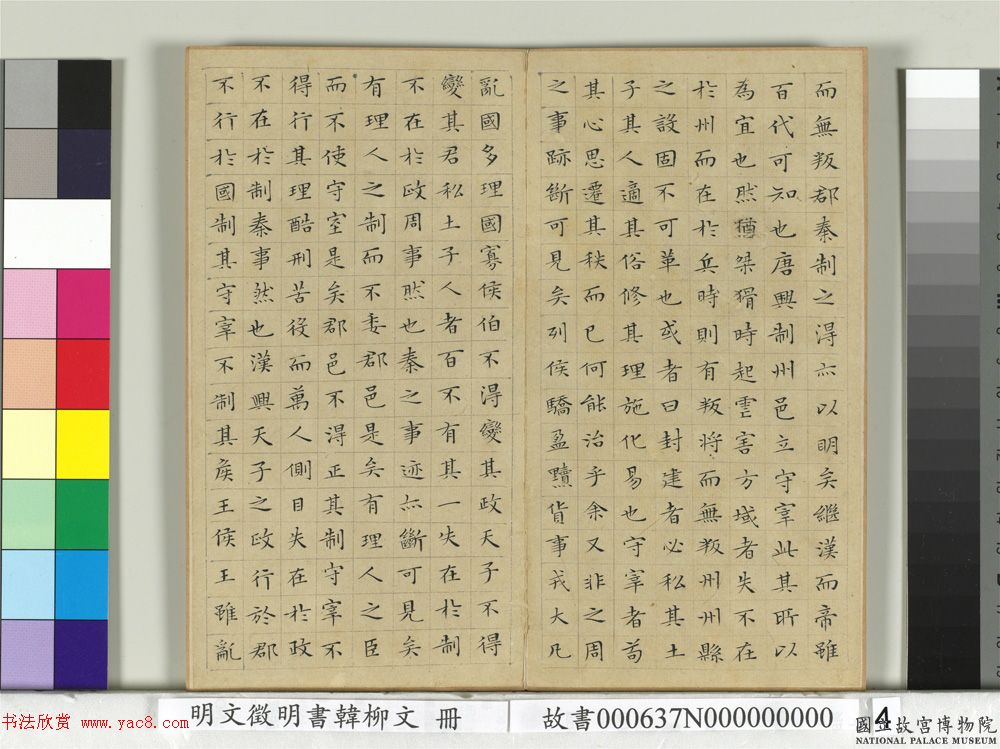 而無叛郡秦制之得亦以明矣繼漢而帝雖
百代可知也唐興制州邑立守宰此其所以
為宜也然猶桀猾時起虐害方域者失不在
於州而在於兵時則有叛將而無叛州州縣
之設固不可革也或者曰封建者必私其土
子其人適其俗修其理施化易也守宰者苟
其心思遷其秩而已何能治乎余又非之周
之事跡斷可見矣列侯驕盈黷貨事戎大凡
亂國多理國寡侯伯不得變其政天子不得
變其君私土子人者百不有其一失在於制
不在於政周事然也秦之事迹亦斷可見矣
有理人之制而不委郡邑是矣有理人之臣
而不使守宰是矣郡邑不得正其制守宰不
得行其理酷刑苦役而萬人側目失在於政
不在於制秦事然也漢興天子之政行於郡
不行於國制其守宰不制其侯王侯王雖亂
明文徵明書韓柳文 冊
故書000637N000000000
4
书法欣赏 www.yac8.com
國立故宮博物院
NATIONAL PALACE MUSEUM